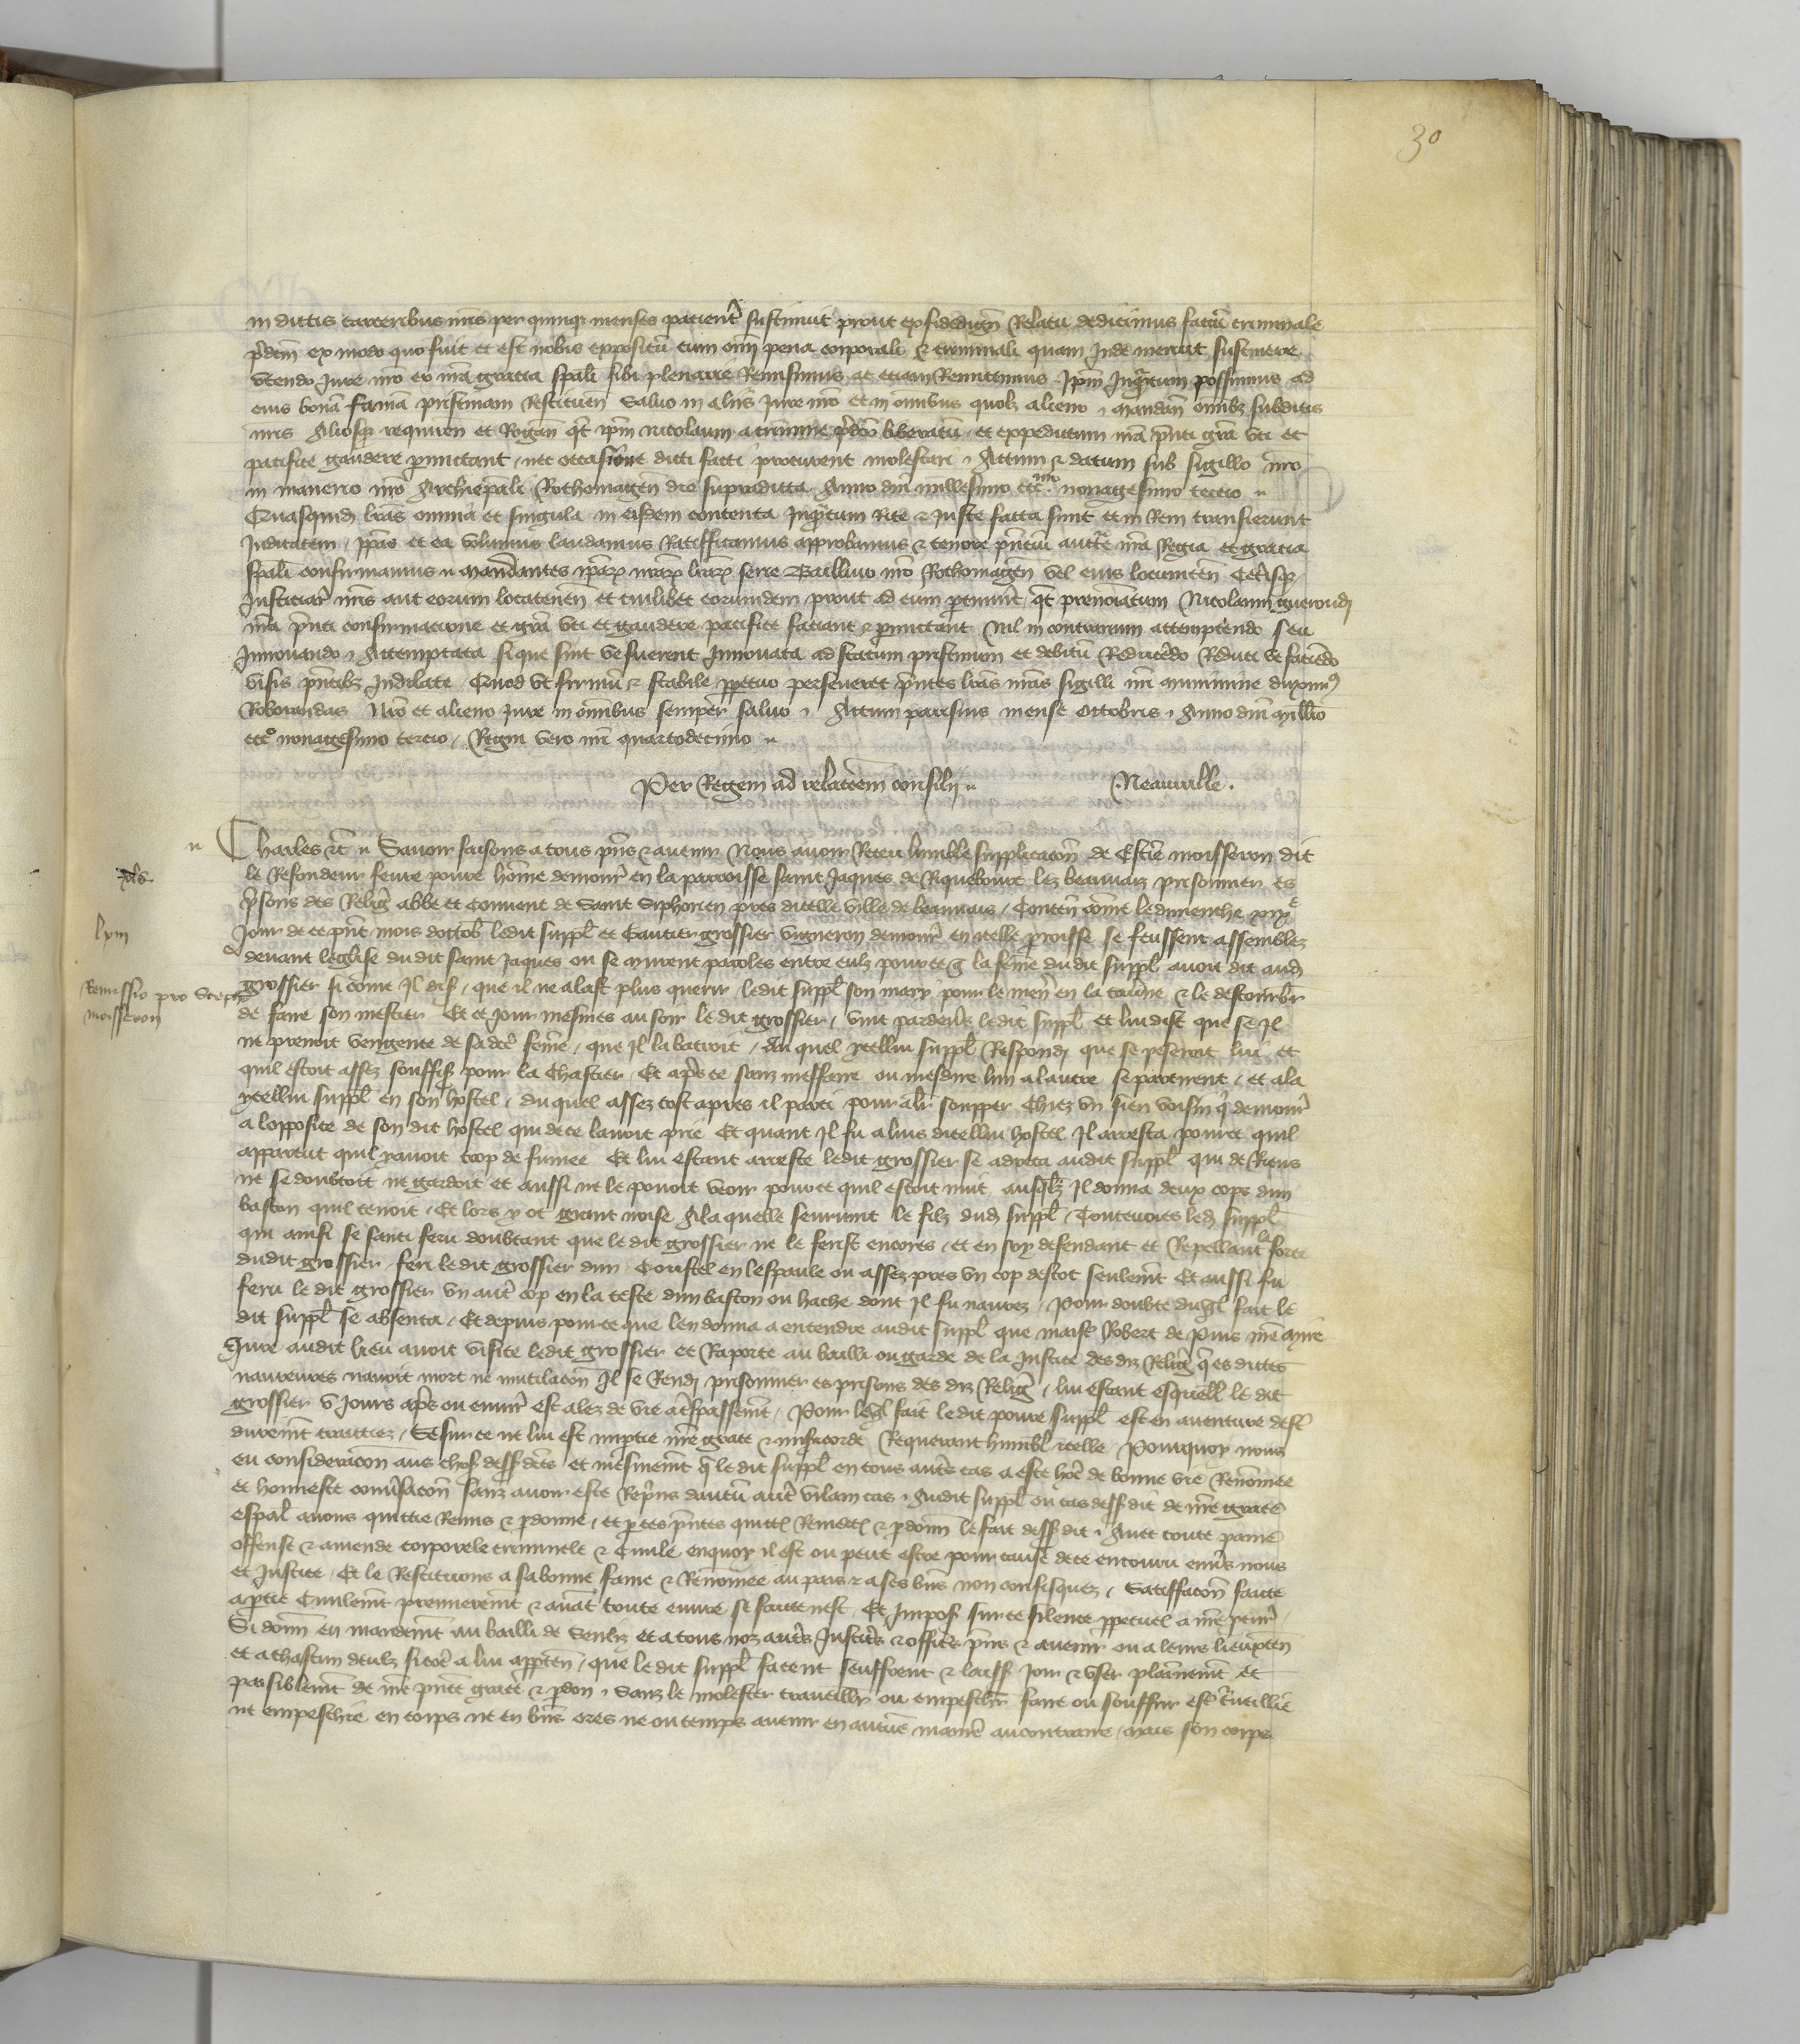 30
in dictis carceribus nris per quinque menses pacient sustinuit prout ex fidedign relatu dedicimus factu criminale
pdcm ex modo quo fuit et est nobis expositu cum omi pena corporali & criminali quam inde meruit sustinere
utendo jure nro ex nra gracia spali sibi plenarie remisimus ac eciam remittimus ipm inqtum possumus ad
eius bona famam pristinam restituen salvo in aliis jure nro et in omnibus quolz alieno mandan omibz subditis
nris aliosqz requiren et rogan qt ipm Nicolaum a crimine pdco liberatu et expeditum nra pnti gra uti et
pacifice gaudere permittant nec occasione dicti facti procurent molestari Actum & datum sub sigillo nro
in manerio nro archiepali Rothomagen die supradicta Anno dni millesimo ccc nonagesimo tercio
Quasquid lras omnia et singula in eisdem contenta inqtum rite & juste facta sunt et in rem transierunt
judicatam ipas et ea volumus laudamus ratifficamus approbamus & tenore pncium auctte nra regia et gracia
spali confirmamus mandantes ipar nrar lrar serie Baillivo nro Rothomagen vel eius locumten ceterisqz
justiciar nris aut eorum locatenen et cuilibet eorumdem prout ad eum ptinuit qt prenoiatum Nicolaum Gueroudi
nra pnti confirmacione et gra uti et gaudere pacifice faciant & permittant nil in contrarium attemptendo seu
innovando attemptata si que sint vel fuerent innovata ad statum pristinum et debitu reducedo reduci ve faciedo
visis pntibz indilate Quod ut firmu & stabile ppetuo perseveret pntes lras nras sigilli nri munimine duximus
roborandas nro et alieno jure in omibus semper salvo Actum parisius mense octobris Anno dni millio
ccc nonagesimo tercio regni vero nri quartodecimo
Per Regem ad relacoem consilii Neauville
Charles &c Savoir faisons a tous pns & avenir Nous avoir receu lumble supplicacon de Estie moisseron dit
le Refondeur fevre povre home demour en la parroisse saint Jaques de Riquebourc lez beauvaiz prisonnier es
prisons des Relig abbe et convent de Saint Siphorien pres dicelle ville de beauvais Conten come le dimenche xix e
jour de ce pnt mois doctob ledit suppl et Gautier grossier vigneron demour en icelle proisse se feussent assemblez
devant leglise dudit saint Jaques ou se murent paroles entre eulz pource q la feme dudit suppl avoit dit aud
grossier si come il dist que il ne alast plus querir ledit suppl son mary pour le men en la taverne & le destourber
de faire son mestier Et ce jour mesmes au soir le dit grossier vint pardevs ledit suppl et lui dist que se il
ne prenoit vengence de sadte feme que il la batroit Au quel ycellui suppl respondi que se peseroit lui et
quil estoit assez souffis pour la chastier Et aps ce sanz meffaire ou mesdire lun a lautre se partirent et ala
ycellui suppl en son hostel du quel assez tost apres il parti pour aler soupper chiez un sien voisin q demour
a lopposite de son dit hostel qui de ce lavoit prie Et quant il fu a luis dicellui hostel il arresta pource quil
apparceut quil yavoit trop de fumee Et lui estant arreste ledit grossier se adreca audit suppl qui de riens
ne se doubtoit ne gardoit et aussi ne le povoit veoir pource quil estoit nuit ausqlz il donna deux cops dun
baston quil tenoit Et lors y ot grant noise A la quelle seurvint le filz dud suppl Toutevoies led suppl
qui ainsi se senti feru doubtant que le dit grossier ne le ferist encores et en soy defendant et repellant la force
dudit grossier feri ledit grossier dun coustel en lespaule ou assez pres un cop destoc seulemt Et aussi fu
feru le dit grossier un autre cop en la teste dun baston ou hache dont il fu navrez Pour doubte duql fait le
dit suppl se absenta Et depuis pour ce que len donna a entendre audit suppl que maist Robert de Puis
Jure audit lieu avoit visite ledit grossier et raporte au bailli ou garde de la justice des diz Relig q es dictes
navreures navoit mort ne mutilacon il se rendi prisonnier es prisons des diz Relig lui estant esquelles le dit
grossier v jours aps ou environ est alez de vie a trespassemt Pour leql fait le dit povre suppl est en aventure dest
durement traictiez Se sur ce ne lui est impartie nre grace & misericorde requerant humbl icelle Pourquoy nous
eu consideracon aus chos dessusdtes et mesmement q le dit suppl en tous autres cas a este home de bonne vie renomee
et honneste conversacon sanz avoir este reprins daucun autre vilain cas Audit suppl ou cas dessusdit de nre grace
espal avons quictie remis & pdonne et p ces pntes quictons remettons & pdonnons le fait dessusdit Avec toute paine
offense & amende corporele criminele & civile enquoy il est ou peut estre pour cause de ce encouru envers nous
et justice Et le restituons a sa bonne fame & renomee au pais & a ses bns non confisquez Satisfacon faicte
a ptie civilemt premieremt & avant toute euvre se faicte nest Et imposons sur ce silence ppetuel a nre procur
Si donn en mandemt au bailli de Senliz et a tous noz autres justiciers & officiers pns & avenir ou a leurs lieuxten
et a chascun deulz sicome a lui apparten que le dit suppl facent seuffrent & laiss joir & user plainement et
paisiblemt de nre pnte grace & pdon Sanz le molester travaillier ou empescher faire ou souffrir estre travaillie
ne empeschie en corps ne en bns ores ne ou temps avenir en aucune maniere au contraire Mais son corps
lxiii
Remissio pro Steph
moisseron